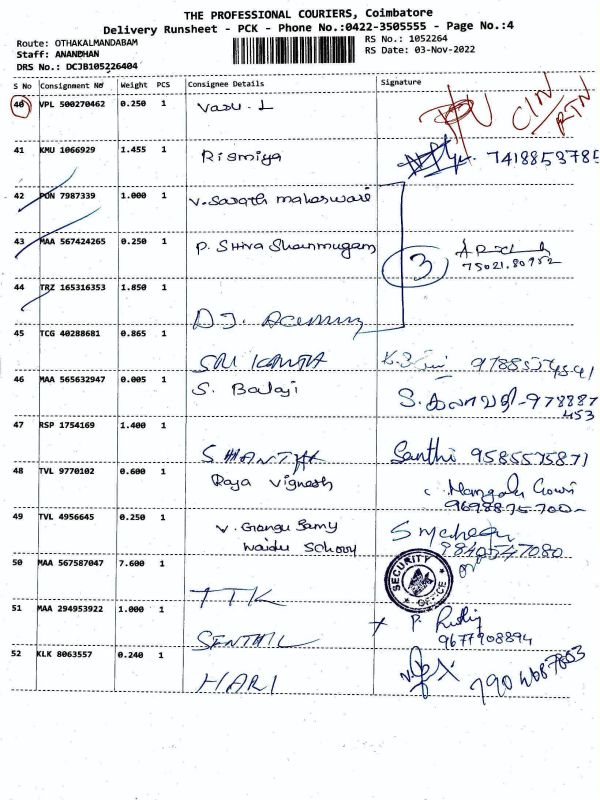 THE PROFESSIONAL COURIERS, Coimbatore
Delivery Runsheet - PCK - Phone No.:0422-3505555 - Page No.:4
Route: OTHAKALMANDABAM
RS No.: 1052264
Staff: ANANDHAN
RS Date: 03-Nov-2022
DRS No.: DCJB105226404
S No Consignment Nº Weight PCS Consignee Details Signature
40 VPL 500270462 0.250 1 Vasu. L
CIN/RTN
41 KMU 1066929 1.455 1 Rismiya 7418853785
42 PON 7987339 1.000 1 V. Sarath maheswari
43 MAA 567424265 0.250 1 P. Shiva Shanmugam 3
75021.80952
44 TRZ 165316353 1.850 1
45 TCG 40288681 0.865 1
46 MAA 565632947 0.005 1 S. Balaji S. கலாவதி - 978887
453
47 RSP 1754169 1.400 1 Santhi 9585575871
48 TVL 9770102 0.600 1 Raja Vignesh
49 TVL 4956645 0.250 1 V. Gangu Samy
Naidu School
50 MAA 567587047 7.600 1 TTK
SECURITY OFFICE
51 MAA 294953922 1.000 1 SENTHIL
9677908894
52 KLK 8063557 0.240 1 HARI